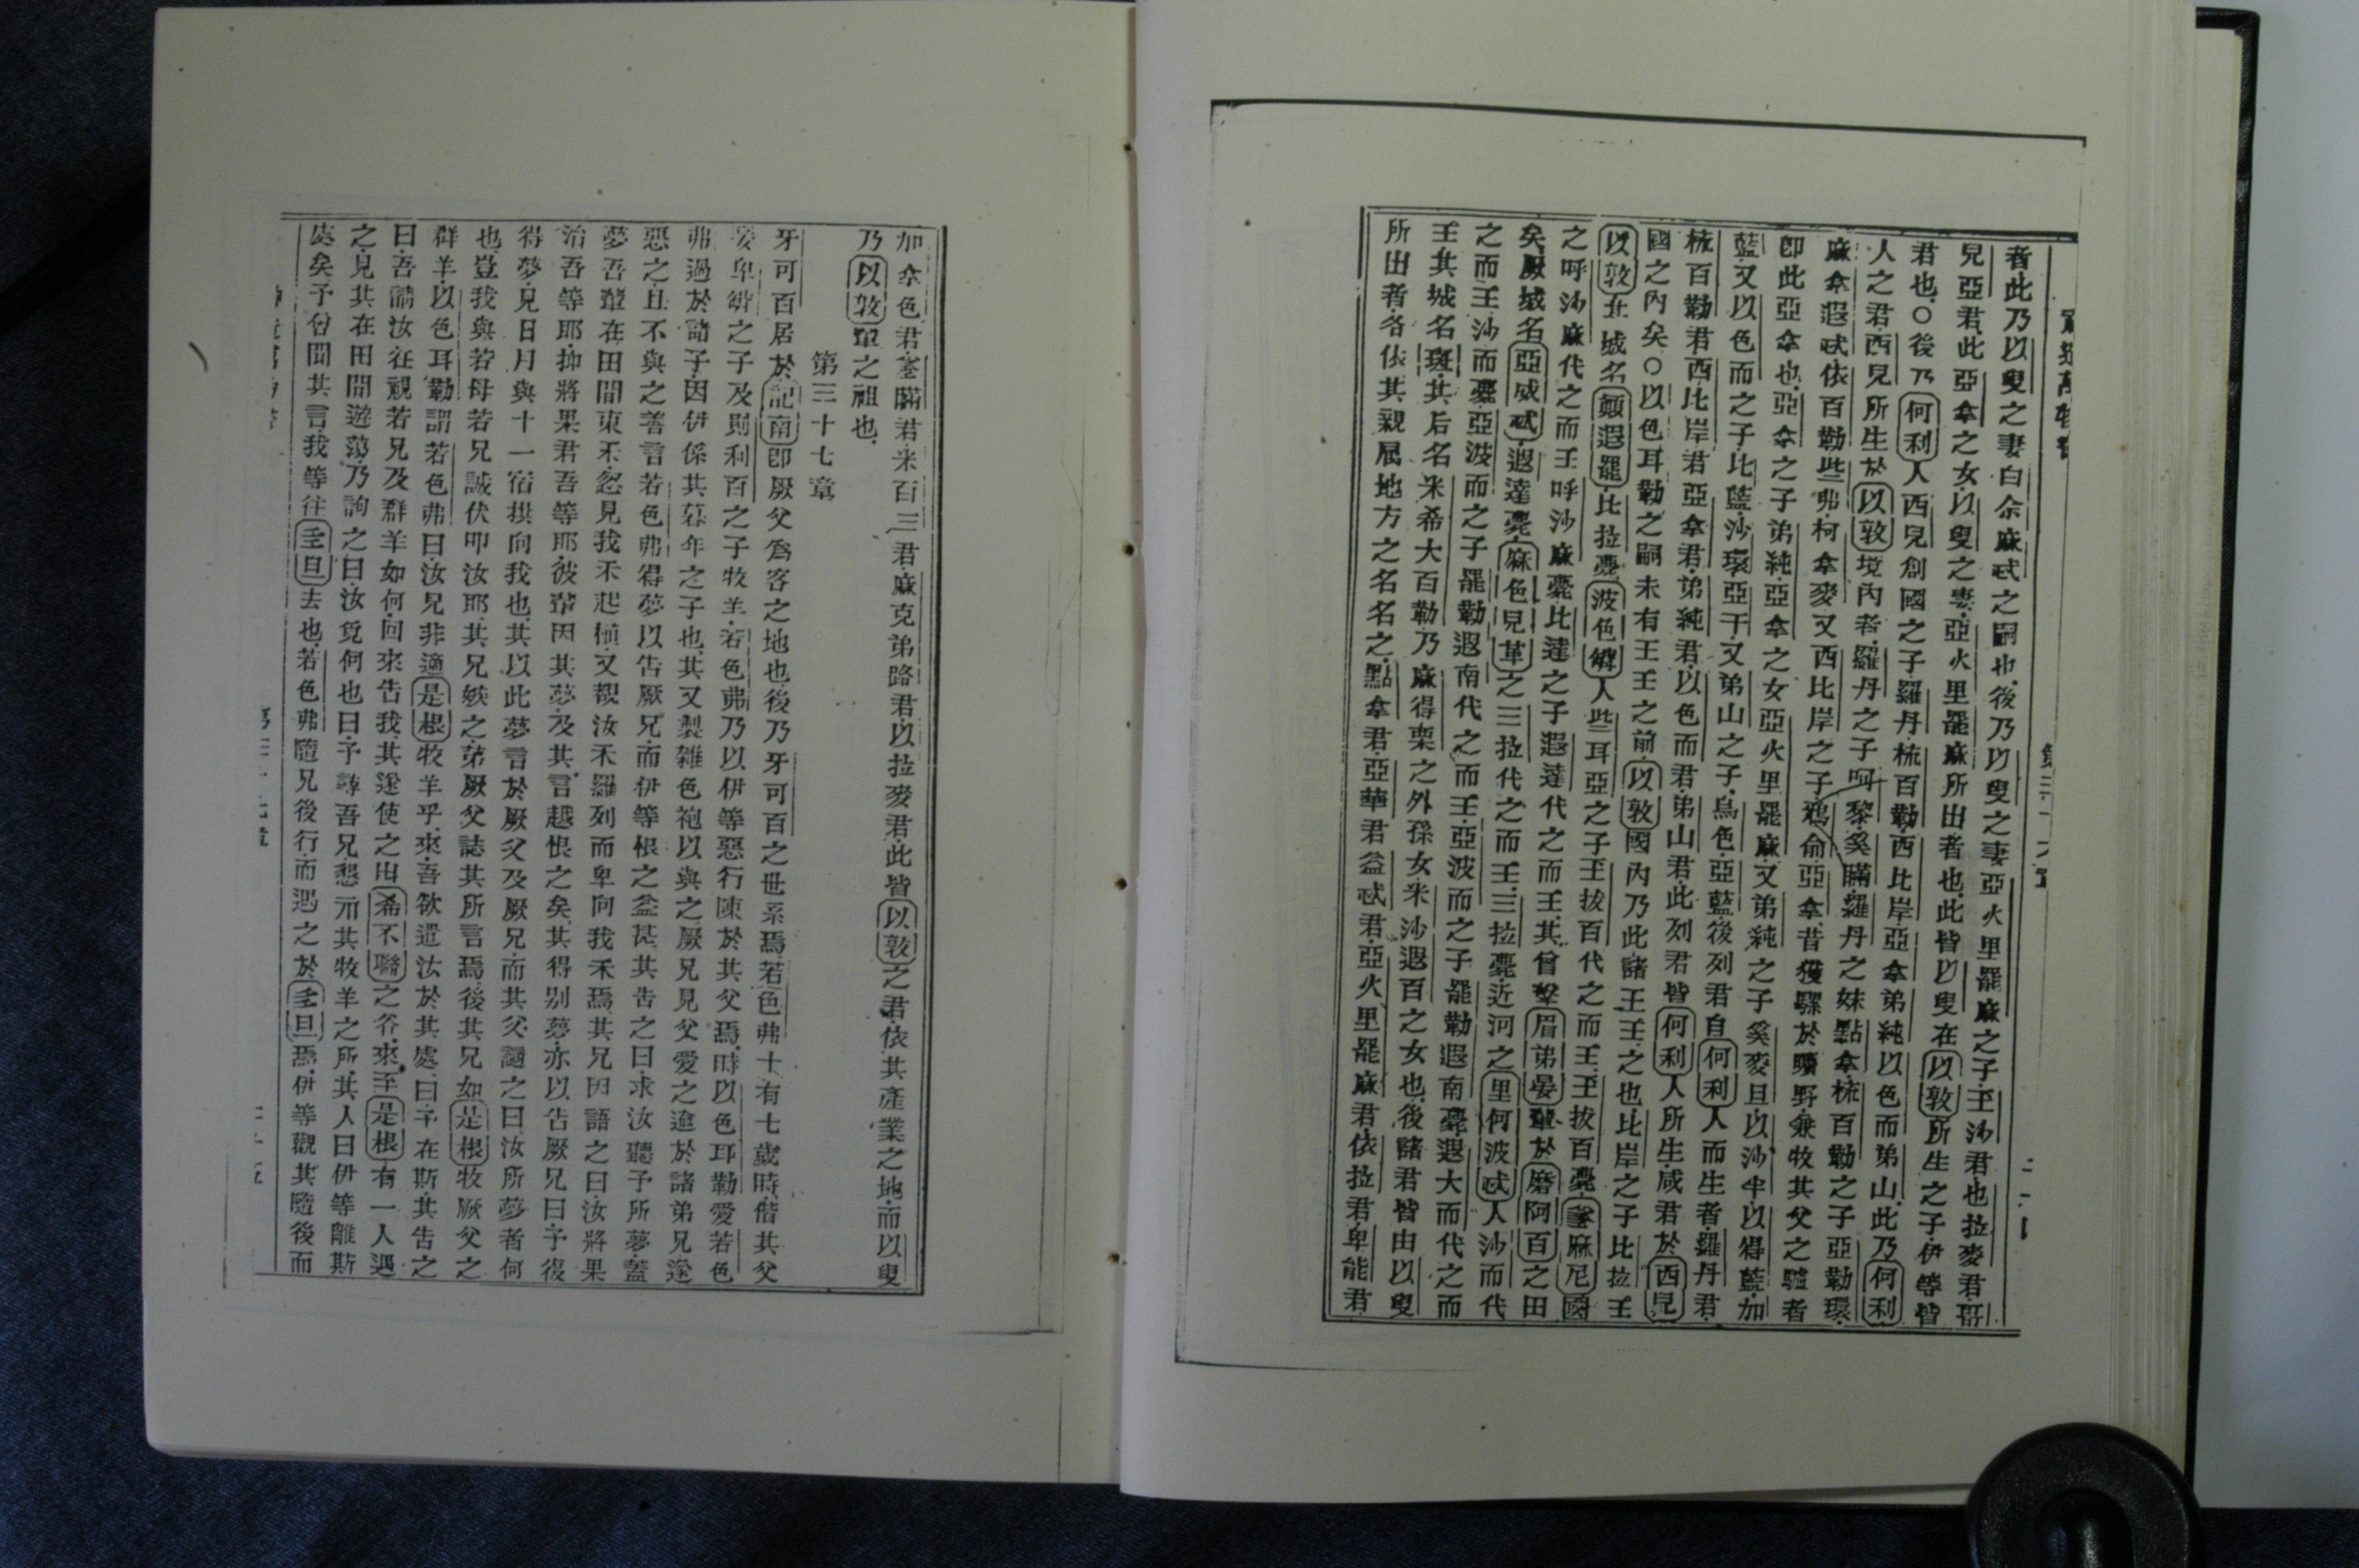 者此乃以叟之妻白余麻忒之嗣也後乃以叟之妻亞火里罷麻之子王沙君也拉麥君哥
兒亞君此亞拿之女以叟之妻亞火里罷麻所出者也此皆以叟在以敦所生之子伊等皆
君也○後乃何利人西兒創國之子羅丹梳百勒西比岸亞拿弟純以色而弟山此乃何利
人之君西見所生於以敦境內者羅丹之子呵黎奚瞞羅丹之妹點拿梳百勒之子亞勒環
麻拿遐忒依百勒些弗柯拿麥又西比岸之子鴉俞亞拿昔獲騾於曠野兼牧其父之驢者
卽此亞拿也亞拿之子弟純亞拿之女亞火里罷麻又弟純之子奚麥且以沙半以得藍加
藍又以色而之子比藍沙環亞干又弟山之子烏色亞藍後列君自何利人而生者羅丹君
梳百勒君西比岸君亞拿君弟純君以色而君弟山君此列君皆何利人所生咸君於西見
國之內矣○以色耳勒之嗣未有王王之前以敦國內乃此諸王王之也比岸之子比拉王
以敦其城名顛遐罷比拉薨波色觪人些耳亞之子王拔百代之而王王拔百薨拿麻尼國
之呼沙麻代之而王呼沙麻薨比達之子遐達代之而王其曾擊眉弟晏輩於磨阿百之田
矣厥城名亞威忒遐達薨麻色見革之三拉代之而王三拉薨近河之里何波忒人沙而代
之而王沙而薨亞波而之子罷勒遐南代之而王亞波而之子罷勒遐南薨遐大而代之而
王其城名斑其后名米希大百勒乃麻得栗之外孫女米沙遐百之女也後諸君皆由以叟
所出者各依其親屈地方之名名之點拿君亞華君益忒君亞火里罷麻君依拉君卑能君
加拿色君奎瞞君米百三君麻克弟路君以拉麥君此皆以敦之君依其產業之地而以叟
乃以敦軰之祖也
第三十七章
牙可百居於記南卽厥父爲客之地也後乃牙可百之世系焉若色弗十有七歲時偕其父
妾卑觪之子及則利百之子牧羊若色弗乃以伊等惡行陳於其父焉時以色耳勒愛若色
弗過於諸子因伊係其暮年之子也其又製雜色袍以與之厥兄見父愛之逾於諸弟兄遂
惡之且不與之善言若色弗得夢以吿厥兄而伊等恨之益甚其吿之曰求汝聽予所夢蓋
夢吾輩在田間束禾忽見我禾起植又覩汝禾羅列而卑向我禾焉其兄因語之曰汝將果
治吾等耶抑將果君吾等耶彼輩因其夢及其言越恨之矣其得别夢亦以吿厥兄曰予復
得夢見日月與十一宿拱向我也其以此夢言於厥父及厥兄而其父謫之曰汝所夢者何
也豈我與若母若兄誠伏叩汝耶其兄嫉之第厥父誌其所言焉後其兄如是根牧厥父之
群羊以色耳勒謂若色弗曰汝兄非適是根牧羊乎來吾欲遣汝於其處曰予在斯其吿之
曰吾請汝往視若兄及群羊如何回來吿我其遂使之出希不聯之谷來至是根有一人遇
之見其在田間遊蕩乃詢之曰汝覓何也曰予尋吾兄懇示其牧羊之所其人曰伊等離斯
處矣予曾聞其言我等往乭旦去也若色弗隨兄後行而遇之於乭旦焉伊等觀其隨後而